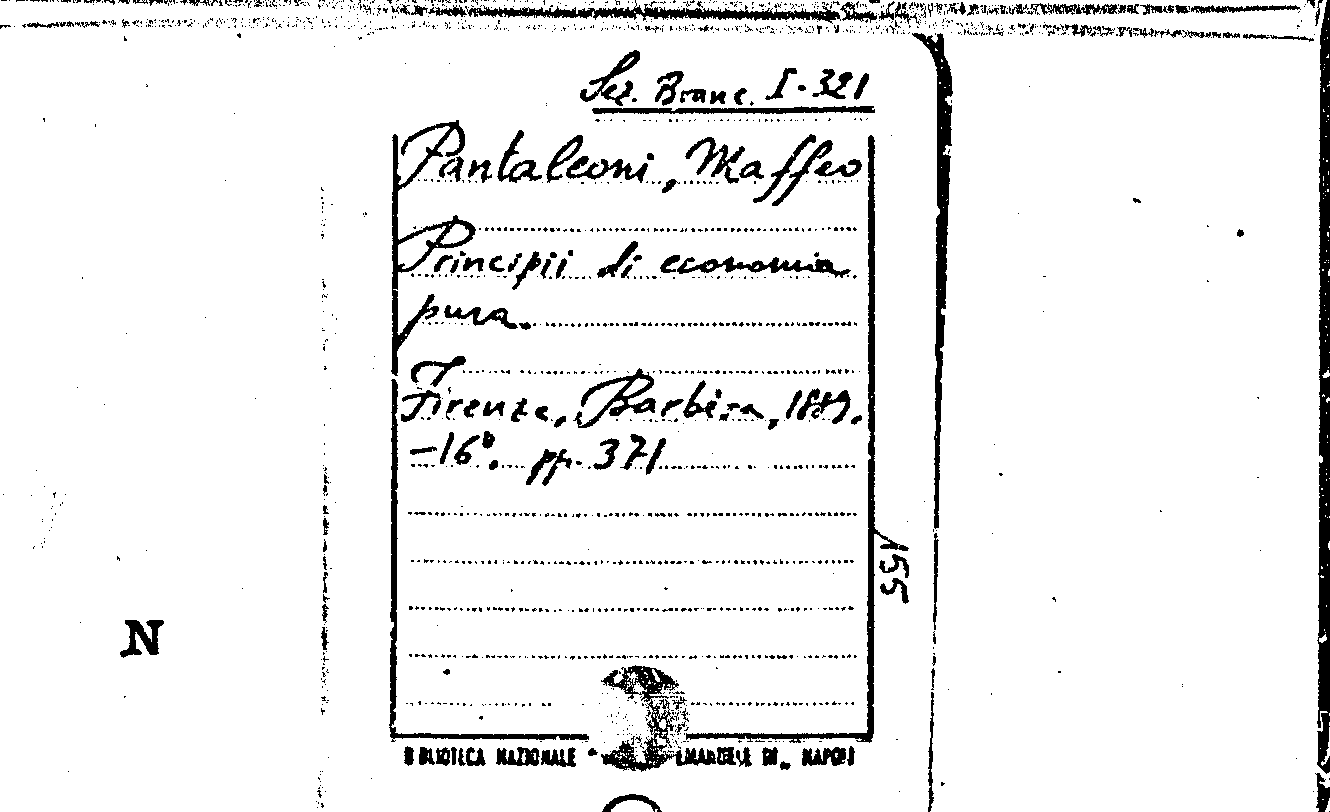 Sez. Branc. I-321
Pantaleoni, Maffeo
Principii di economia
pura.
Firenze, Barbèra, 1889.
-16°. pp. 371
155
N
BIBLIOTECA NAZIONALE " EMANUELE III„ NAPOLI